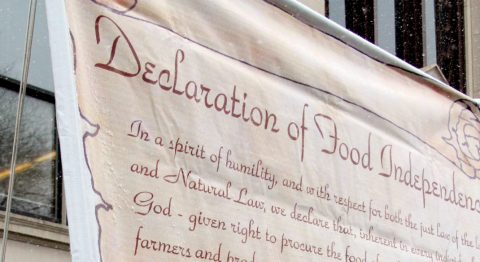 Declaration of Food Independence
In a spirit of humility, and with respect for both the just law of the
and Natural Law, we declare that, inherent in every
God - given right to procure the food
farmers and